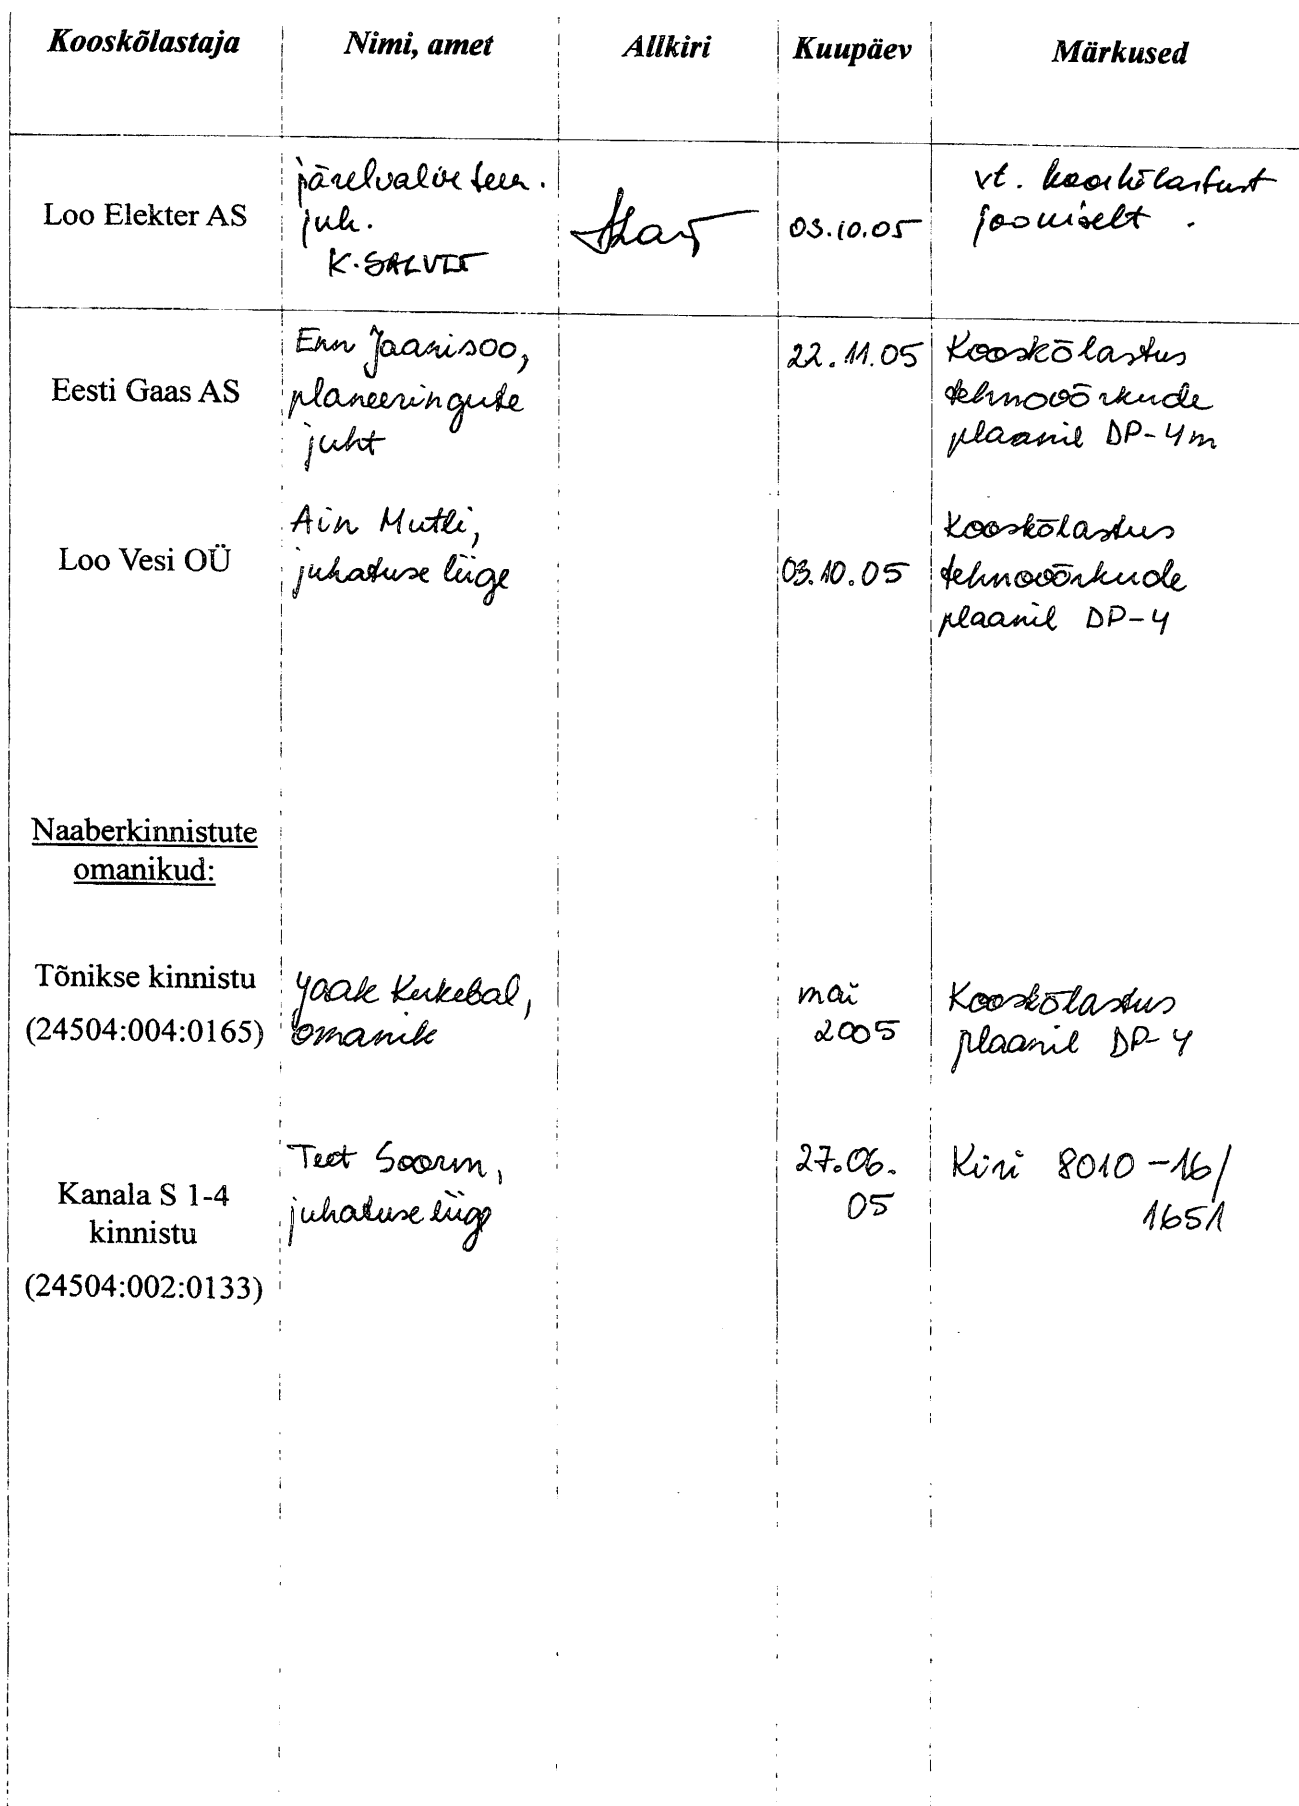 Kooskõlastaja Nimi, amet Allkiri Kuupäev Märkused
Loo Elekter AS
järelvalve teen.
juh.
K. SALVET
03.10.05
vt. kooskõlastust
jooniselt.
Eesti Gaas AS
Enn Jaanisoo,
planeeringute
juht
22.11.05
Kooskõlastus
tehnovõrkude
plaanil DP-4m
Loo Vesi OÜ
Ain Mutli,
juhatuse liige
03.10.05
Kooskõlastus
tehnovõrkude
plaanil DP-4
Naaberkinnistute
omanikud:
Tõnikse kinnistu
(24504:004:0165)
Jaak Kukebal,
omanik
mai
2005
Kooskõlastus
plaanil DP-4
Kanala S 1-4
kinnistu
(24504:002:0133)
Teet Soorm,
juhatuse liige
27.06.
05
Kiri 8010-16/
1651